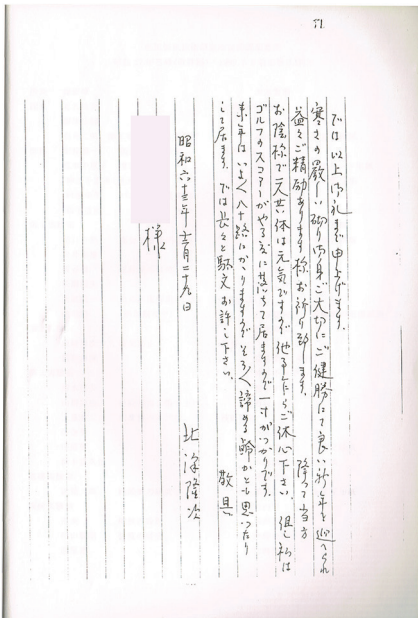 11.
では以上御礼まで申上げます。
寒さの厳しい砌り御身ご大切にご健勝にて良い新年を迎へられ
益々ご精励あります様お祈り致します。 降って当方
お陰様で元共い体は元気ですが他事ながらご休心下さい、但し私は
ゴルフのスコアーがやる度に落ちて居ますので一寸がっかりです。
来年はいよく八十路にかゝりますがそろく諦める齢かとも思ったり
して居ます。では長々と駄文お許し下さい。 敬具
昭和六十三年十二月二十九日
北澤隆次
様